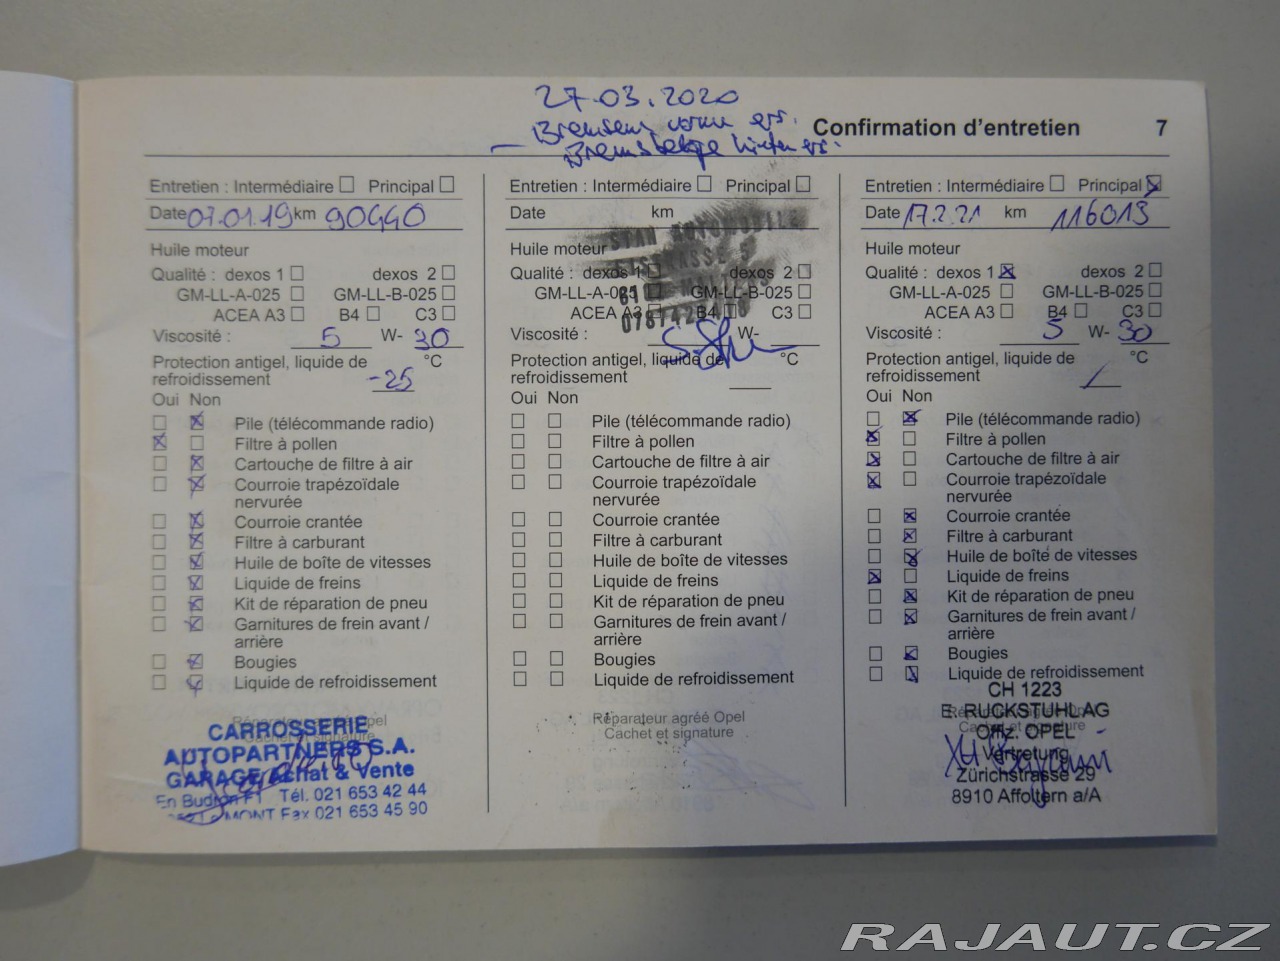 27.03.2020
Bremsen vorn ers.
Confirmation d'entretien 7
Entretien : Intermédiaire Principal
Date 07.01.19 km 90440
Huile moteur
Qualité : dexos 1 dexos 2
GM-LL-A-025 GM-LL-B-025
ACEA A3 B4 C3
Viscosité : 5 W- 30
Protection antigel, liquide de °C
refroidissement -25
Oui Non
Pile (télécommande radio)
Filtre à pollen
Cartouche de filtre à air
Courroie trapézoïdale
nervurée
Courroie crantée
Filtre à carburant
Huile de boîte de vitesses
Liquide de freins
Kit de réparation de pneu
Garnitures de frein avant /
arrière
Bougies
Liquide de refroidissement
Réparateur agréé Opel
Cachet et signature
CARROSSERIE
AUTOPARTNERS S.A.
GARAGE Achat & Vente
En Budron Tél. 021 653 42 44
MONT Fax 021 653 45 90
Entretien : Intermédiaire Principal
Date km
STAN AUTOMOBILE
Huile moteur
Qualité : dexos 1 dexos 2
GM-LL-A-025 GM-LL-B-025
ACEA A3 B4 C3
Viscosité : W-
Protection antigel, liquide de °C
refroidissement
Oui Non
Pile (télécommande radio)
Filtre à pollen
Cartouche de filtre à air
Courroie trapézoïdale
nervurée
Courroie crantée
Filtre à carburant
Huile de boîte de vitesses
Liquide de freins
Kit de réparation de pneu
Garnitures de frein avant /
arrière
Bougies
Liquide de refroidissement
Réparateur agréé Opel
Cachet et signature
Entretien : Intermédiaire Principal
Date 17.2.21 km 116013
Huile moteur
Qualité : dexos 1 dexos 2
GM-LL-A-025 GM-LL-B-025
ACEA A3 B4 C3
Viscosité : 5 W- 30
Protection antigel, liquide de °C
refroidissement /
Oui Non
Pile (télécommande radio)
Filtre à pollen
Cartouche de filtre à air
Courroie trapézoïdale
nervurée
Courroie crantée
Filtre à carburant
Huile de boîte de vitesses
Liquide de freins
Kit de réparation de pneu
Garnitures de frein avant /
arrière
Bougies
Liquide de refroidissement
CH 1223
E. RUCKSTUHL AG
Offiz. OPEL
Vertretung
Zürichstrasse 29
8910 Affoltern a/A
RAJAUT.CZ